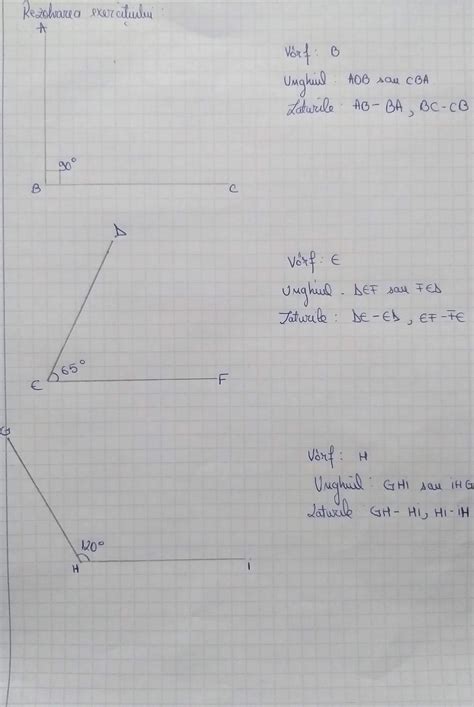 Rezolvarea exercițiului:
A
90°
B
C
Vârf: B
Unghiul: AOB sau CBA
Laturile: AB-BA, BC-CB
D
65°
E
F
Vârf: E
Unghiul. DEF sau FED
Laturile: DE-ED, EF-FE
G
120°
H
I
Vârf: H
Unghiul: GHI sau IHG
Laturile GH-HI, HI-IH